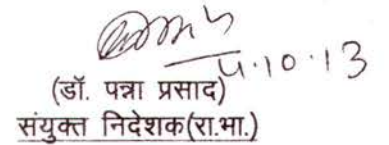 4.10.13
(डॉ. पन्ना प्रसाद)
संयुक्त निदेशक(रा.भा.)